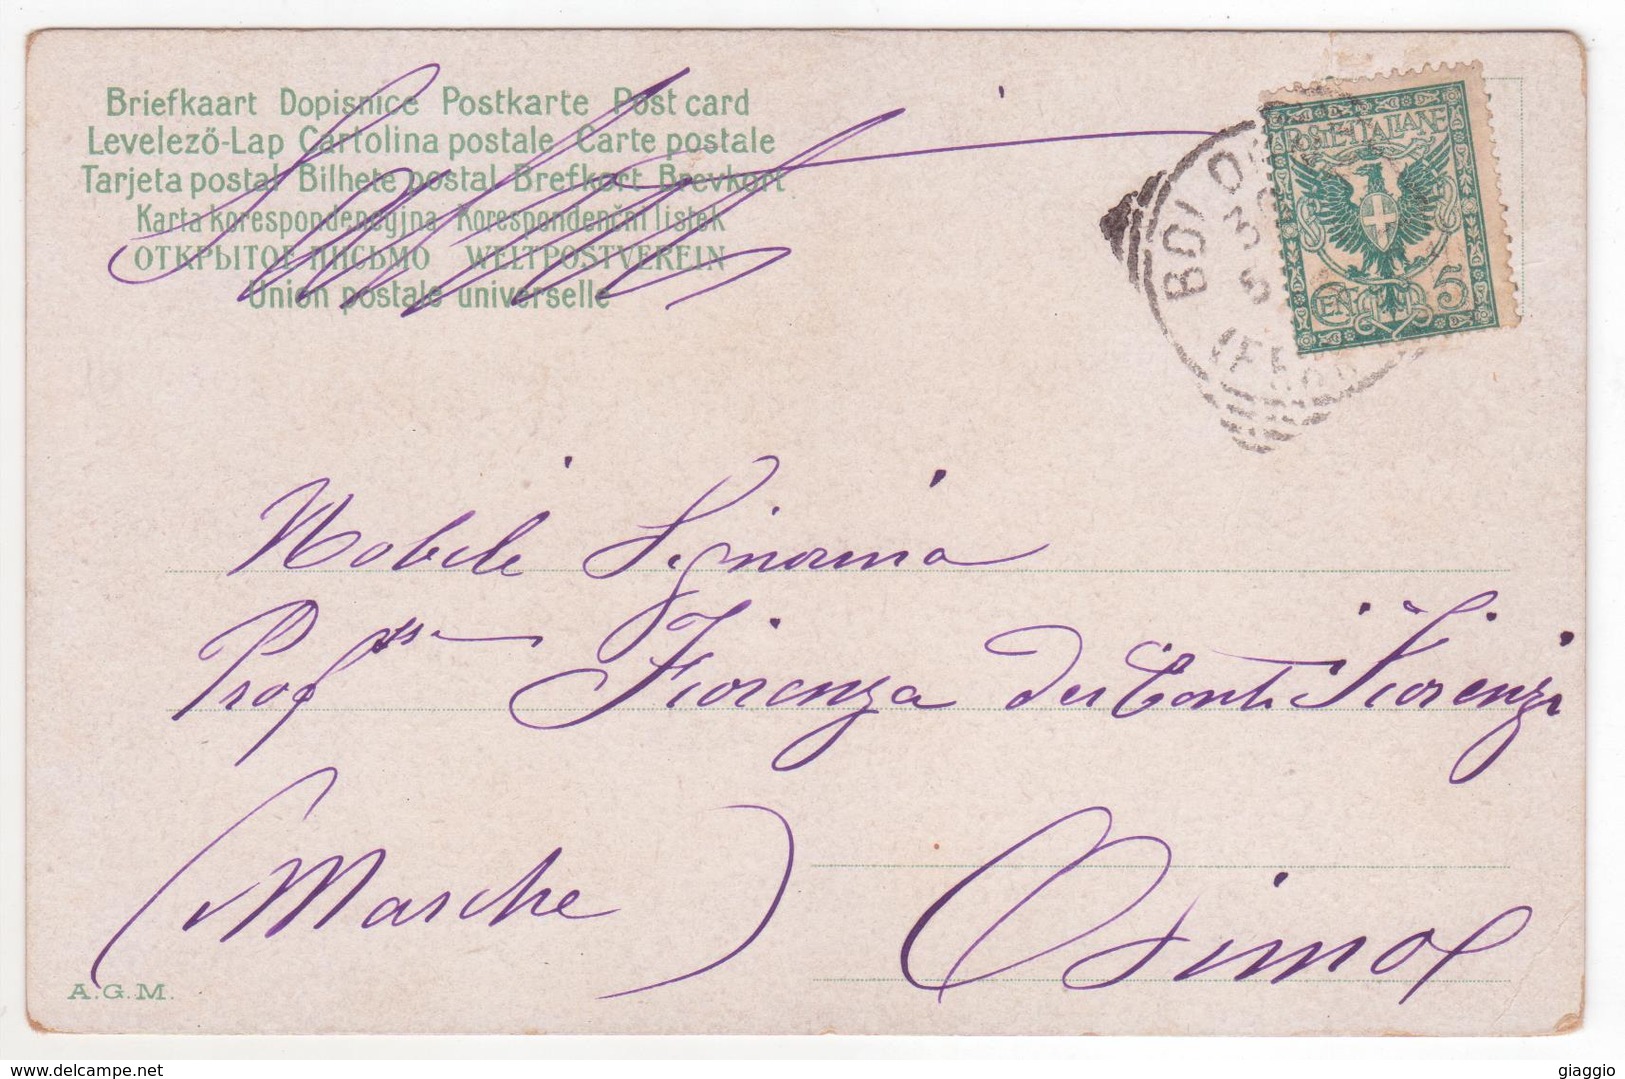 Briefkaart Dopisnice Postkarte Post card
Levelező-Lap Cartolina postale Carte postale
Tarjeta postal Bilhete postal Brefkort Brevkort
Karta korespondencyjna Korespondenční listek
ОТКРЫТОЕ ПИСЬМО WELTPOSTVEREIN
Union postale universelle
POSTE·ITALIANE
CEN. 5
BOLOG
30
5
Nobile Signorina
Prof.ssa Fiorenza dei Conti Fiorenzi
(Marche)
Osimo
A.G.M.
delcampe.net
giaggio